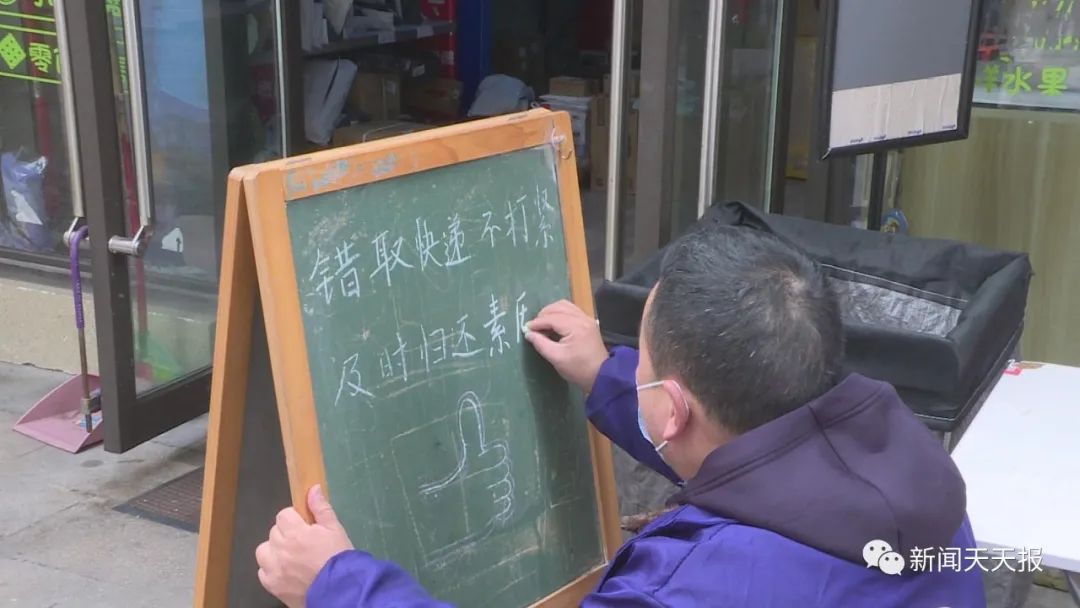 零
水果
错取快递不打紧
及时归还素
新闻天天报